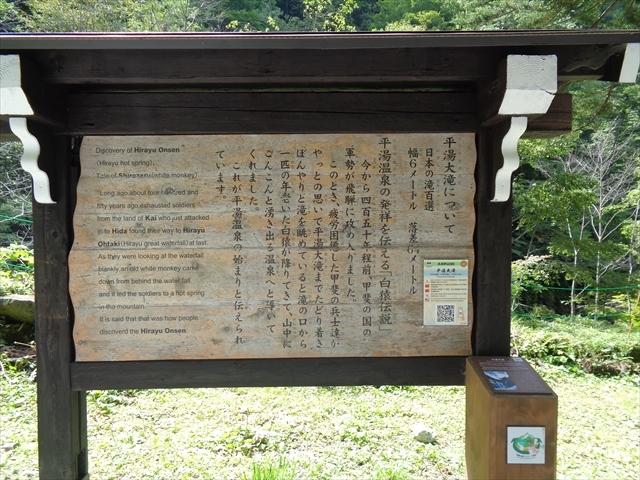 平湯大滝について
日本の滝百選
幅6メートル　落差6　メートル
平湯温泉の発祥を伝える「白猿伝説」
今から四百五十年程前、甲斐の国の
軍勢が飛騨に攻め入りました。
このとき、疲労困憊した甲斐の兵士達が
やっとの思いで平湯大滝までたどり着き
ぼんやりと滝を眺めていると滝の口から
一匹の年老いた白猿が降りてきて、山中に
こんこんと湧き出る温泉へと導いて
くれました。
これが平湯温泉の始まりと伝えられ
ています。
Discovery of Hirayu Onsen
(Hirayu hot spring),
Tale of Shirozaru(white monkey)
Long ago about four hundred and
fifty years ago exhausted soldiers
from the land of Kai who just attacked
in to Hida found their way to Hirayu
Ohtaki(Hirayu great waterfall)at last.
As they were looking at the waterfall
blankly an old white monkey came
down from behind the water fall
and it led the soldiers to a hot spring
in the mountain.
It is said that that was how people
discoverd the Hirayu Onsen.
平湯大滝